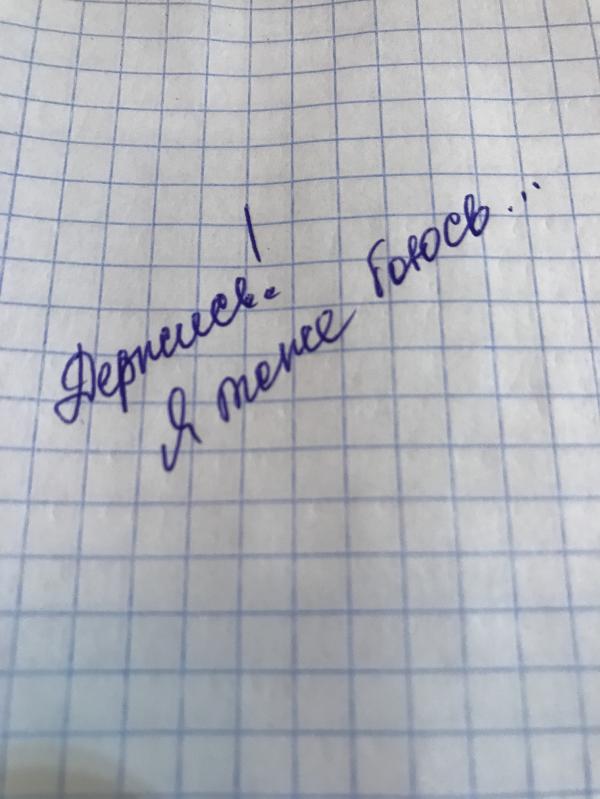 Держись!
Я тоже боюсь...